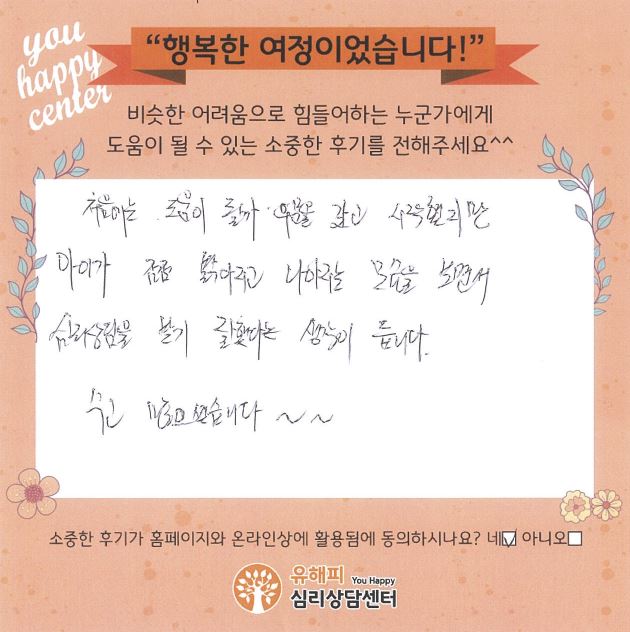 you
happy
center
“행복한 여정이었습니다!”
비슷한 어려움으로 힘들어하는 누군가에게
도움이 될 수 있는 소중한 후기를 전해주세요^^
처음에는 도움이 될까 의문을 갖고 시작했지만
아이가 점점 밝아지고 나아지는 모습을 보면서
심리상담을 받기 잘했다는 생각이 듭니다.
수고 많으셨습니다 ~ ~
소중한 후기가 홈페이지와 온라인상에 활용됨에 동의하시나요? 네☑ 아니오☐
유해피 You Happy
심리상담센터